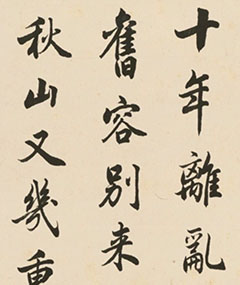 十年離亂
舊容別来
秋山又幾重